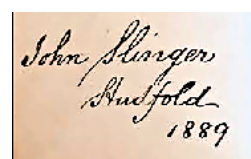 John Slinger
Studfold
1889